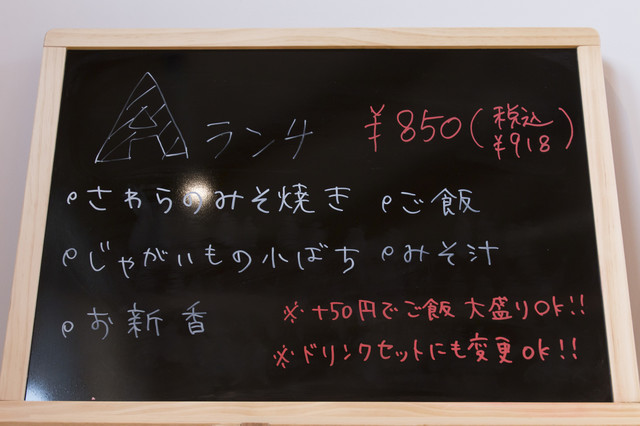 Aランチ ¥850(税込 ¥918)
さわらのみそ焼き ご飯
じゃがいもの小ばち みそ汁
お新香
※+50円でご飯 大盛りOk!!
※ドリンクセットにも変更OK!!